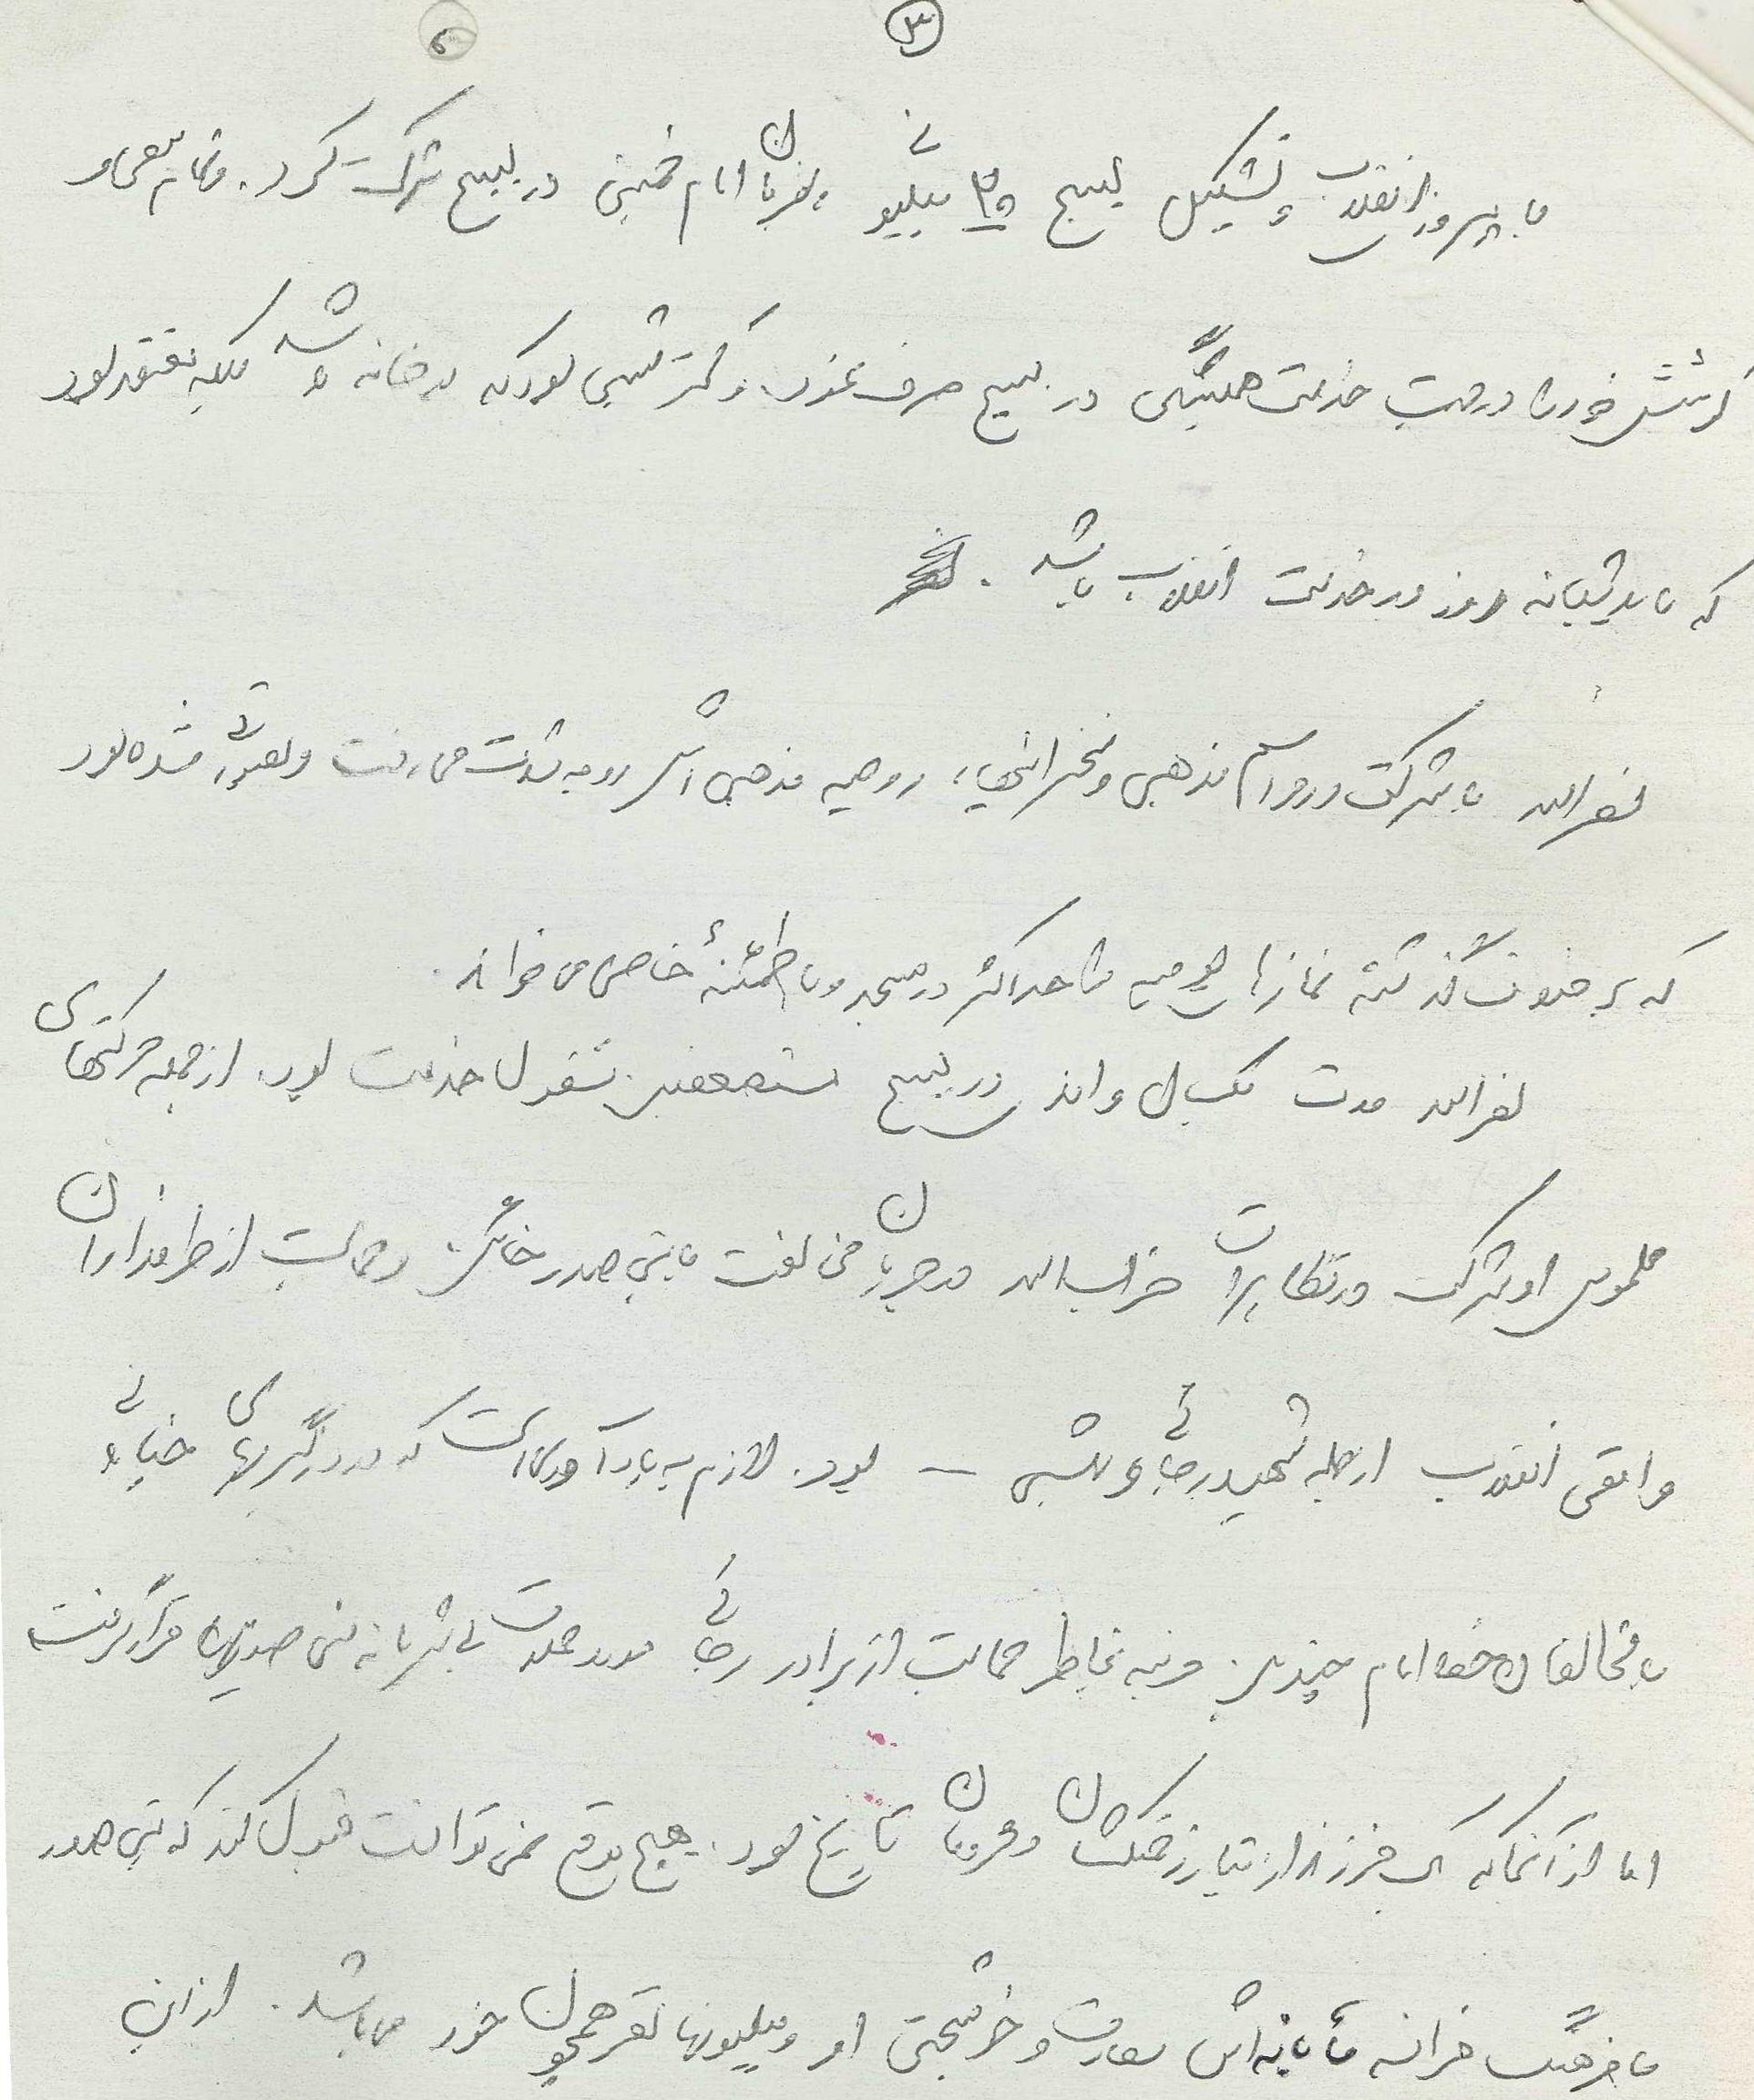 ۳
با پیروزی انقلاب و تشکیل بسیج ۲۰ میلیونی بفرمان امام خمینی در بسیج شرکت کرد. و تمام سعی و
کوشش خود را در جهت خدمت همیشگی در بسیج صرف نمود. و کمتر شبی بود که در خانه باشد بلکه معتقد بود
که باید شبانه روز در خدمت انقلاب باشد.
نصرالله با شرکت در مراسم مذهبی و سخنرانیها، روحیه مذهبی اش رو به شدت می رفت و بصورتی شده بود
که بر خلاف گذشته نمازهای یومیه را حداکثر در مسجد و با طمئنه خاصی می خواند.
نصرالله مدت یکسال و اندی در بسیج مستضعفین مشغول خدمت بود. از جمله حرکتهای
ملموس او شرکت در تظاهرات حزب الله در جریان مخالفت با بنی صدر خائن و حمایت از طرفداران
واقعی انقلاب از جمله شهید رجائی و بهشتی — بود. لازم به یادآوری است که در درگیریهای خیابانی
با مخالفان خط امام چندین مرتبه بخاطر حمایت از برادر رجائی مورد حملات بی شرمانه بنی صدریها قرار گرفت
اما از آنجائیکه او فرزندی از تبار زحمتکشان و محرومان تاریخ بود. هیچ موقع نمی توانست قبول کند که بنی صدر
با فرهنگ فرانسه تأمین سعادت و خوشبختی او و میلیونها نفر همچون خود می باشد. از این